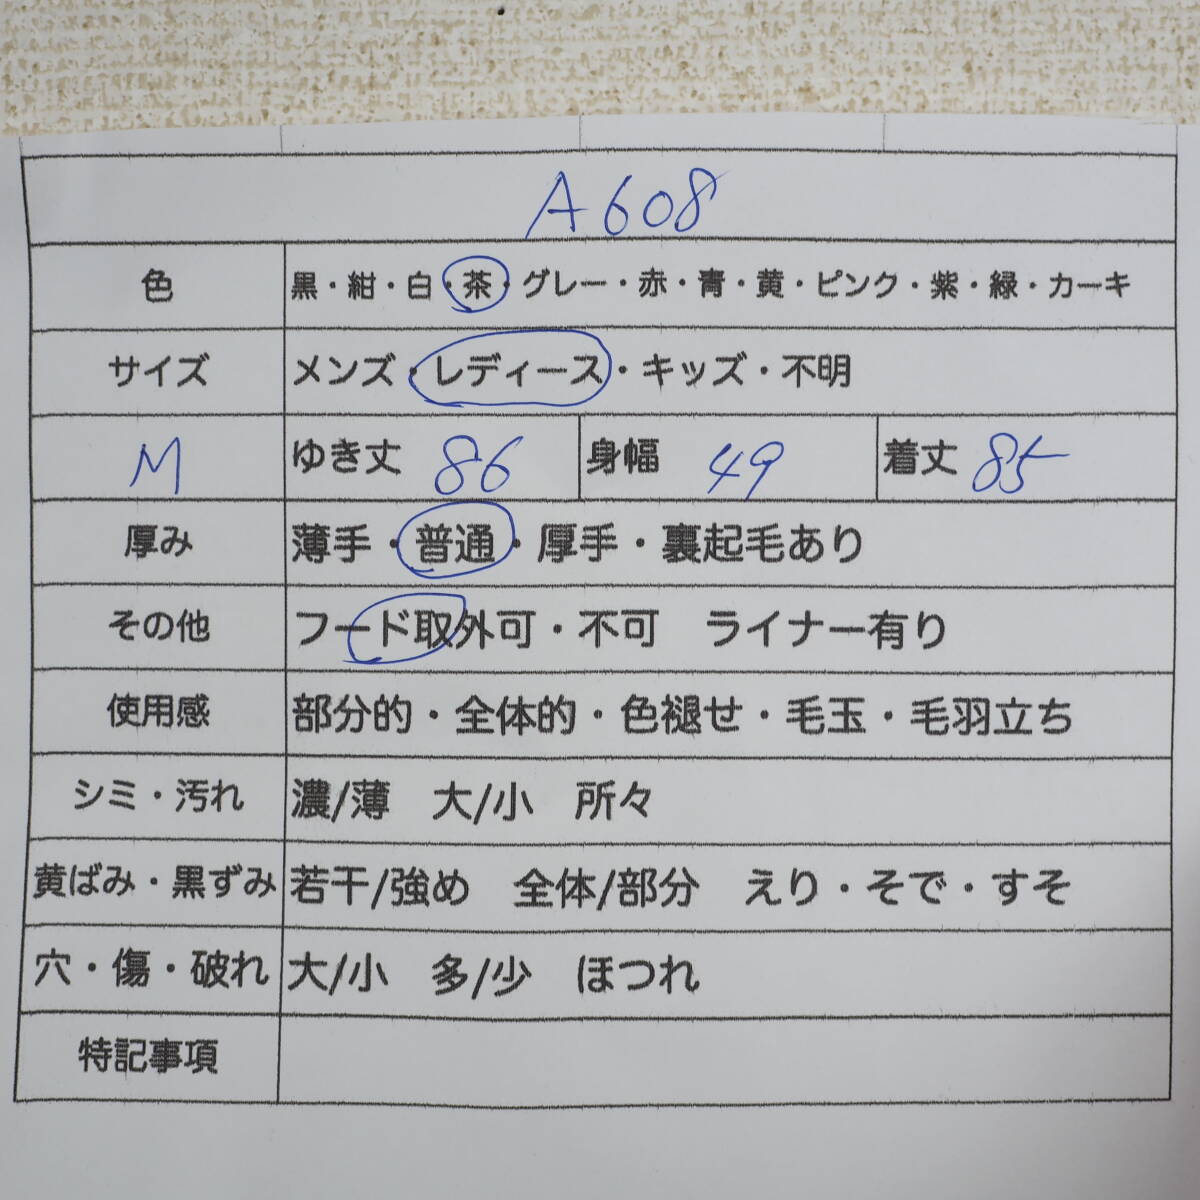 A608
色 黒・紺・白・茶・グレー・赤・青・黄・ピンク・紫・緑・カーキ
サイズ メンズ・レディース・キッズ・不明
M ゆき丈 86 身幅 49 着丈 85
厚み 薄手・普通・厚手・裏起毛あり
その他 フード取外可・不可 ライナー有り
使用感 部分的・全体的・色褪せ・毛玉・毛羽立ち
シミ・汚れ 濃/薄 大/小 所々
黄ばみ・黒ずみ 若干/強め 全体/部分 えり・そで・すそ
穴・傷・破れ 大/小 多/少 ほつれ
特記事項